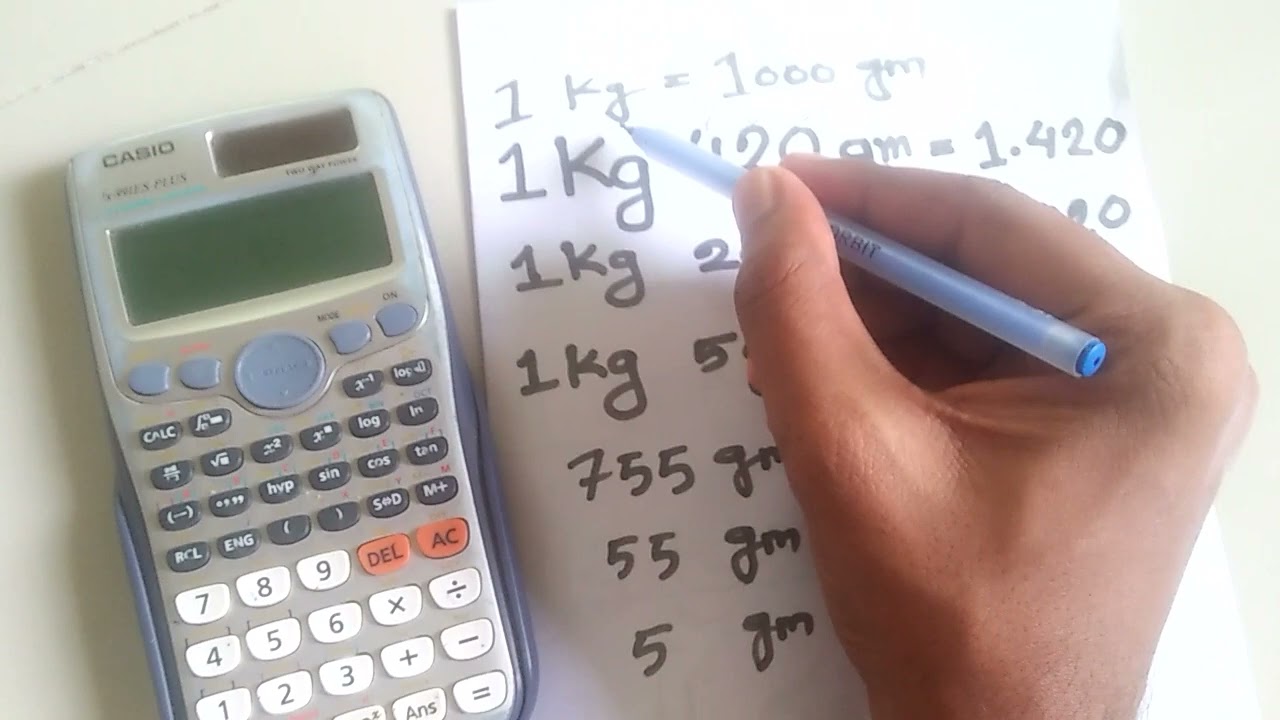 CASIO
TWO WAY POWER
MODE
ON
x⁻¹
CALC
x²
log
ln
hyp
sin
cos
tan
(−)
RCL
ENG
(
)
S⇔D
M+
7
8
9
DEL
AC
4
5
6
×
÷
1
2
3
+
−
Ans
=
1 Kg = 1000 gm
1Kg 420 gm = 1.420
1Kg 2
20
1Kg 5
755 gm
55 gm
5 gm
ORBIT